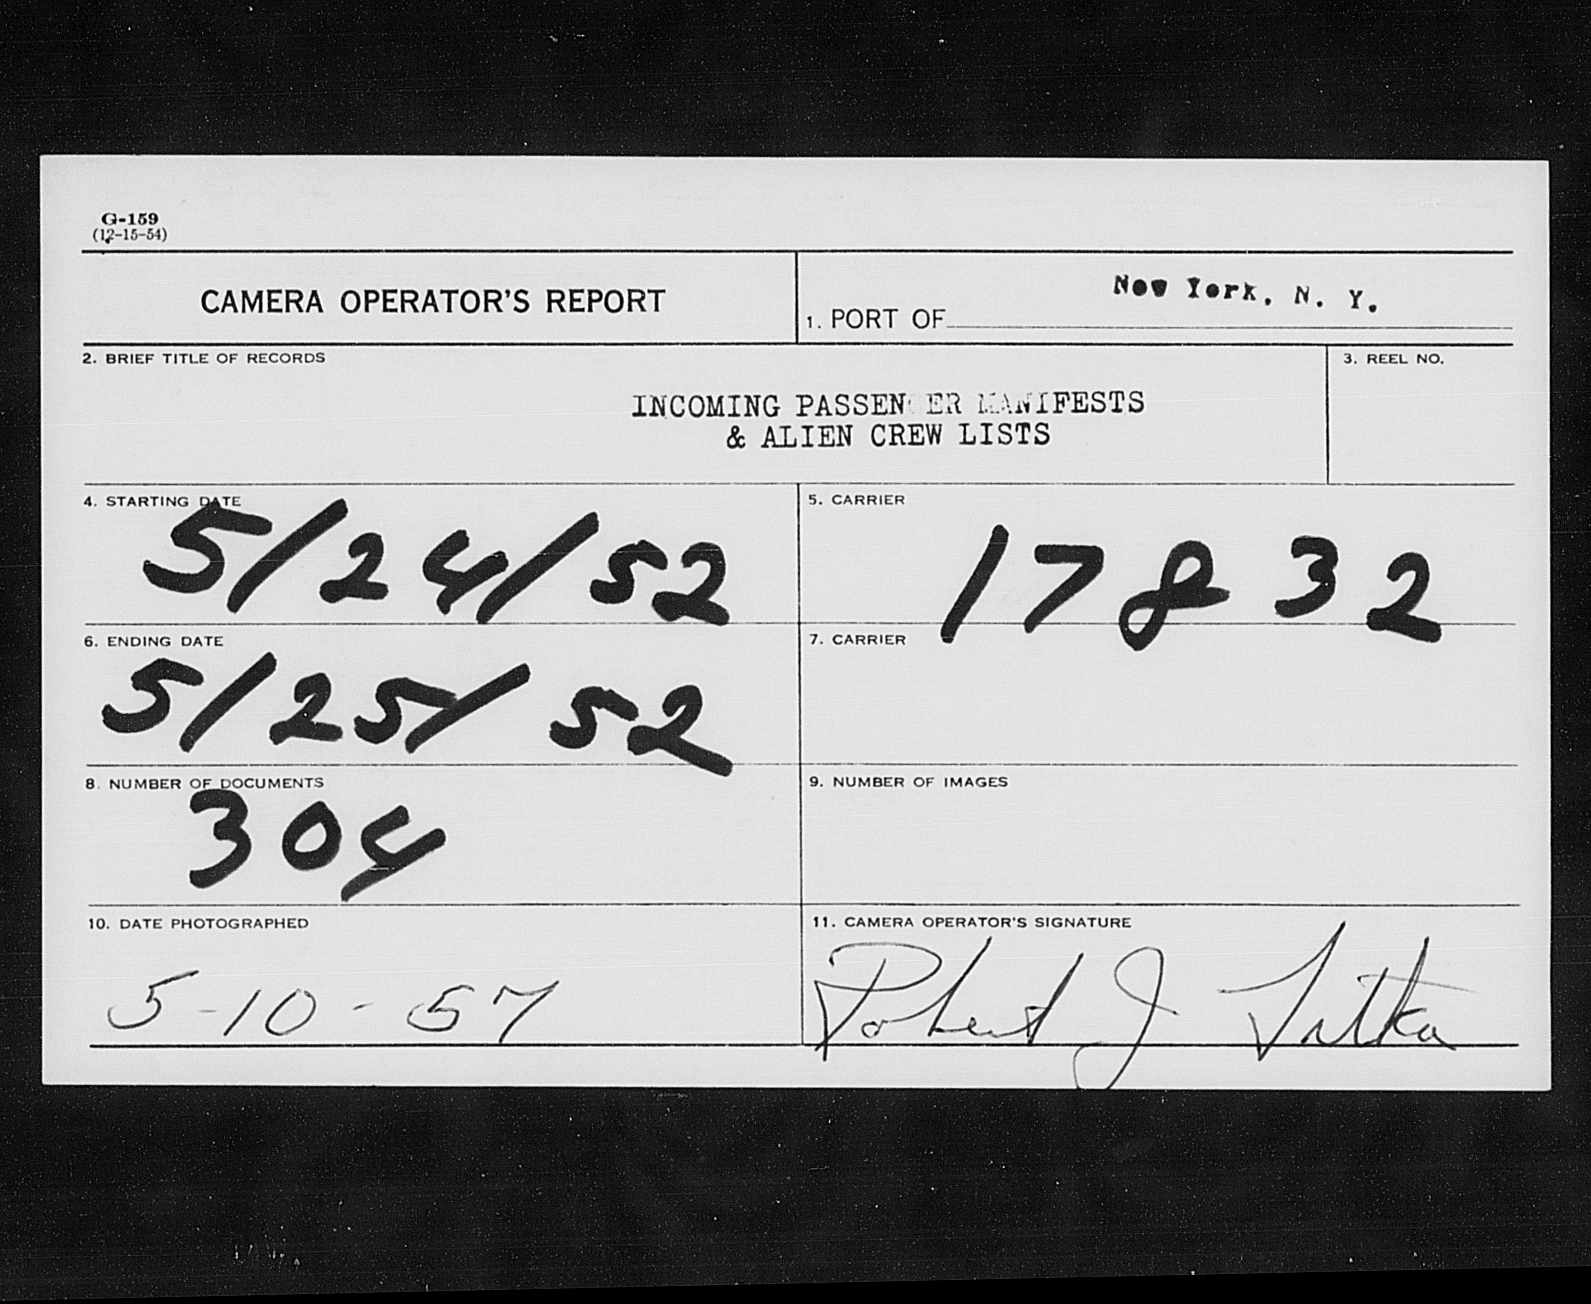 G-159
(12-15-54)
CAMERA OPERATOR'S REPORT
1. PORT OF New York, N. Y.
2. BRIEF TITLE OF RECORDS
INCOMING PASSENGER MANIFESTS
& ALIEN CREW LISTS
3. REEL NO.
4. STARTING DATE
5/24/52
5. CARRIER
17832
6. ENDING DATE
5/25/52
7. CARRIER
8. NUMBER OF DOCUMENTS
304
9. NUMBER OF IMAGES
10. DATE PHOTOGRAPHED
5-10-57
11. CAMERA OPERATOR'S SIGNATURE
Robert J